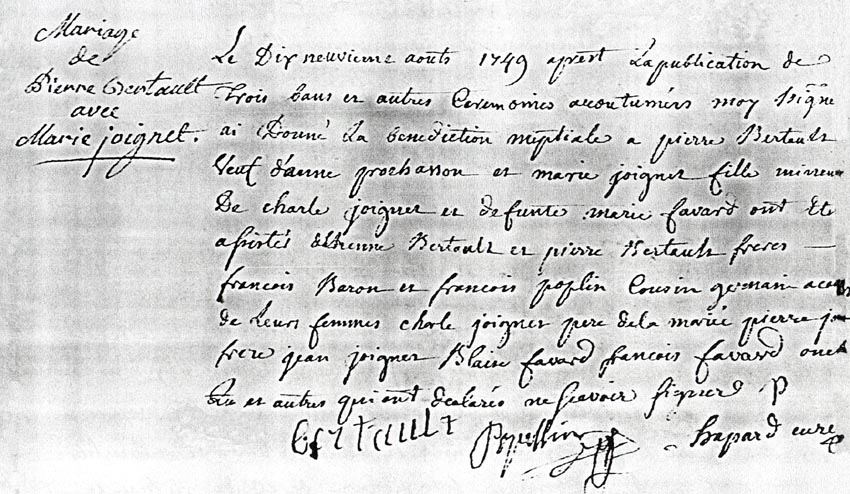 Mariage
de
Pierre Bertault
avec
Marie joignet.
Le Dix neuvieme aouts 1749 aprest La publication de
trois bans et autres Ceremonies acoutumées moy
ai Donné La benediction nuptiale a pierre Bertault
Veuf d'anne prochasson et marie joignet fille mineure
De charle joignet et defunte marie favard ont Eté
assistés Estienne Bertault et pierre Bertault freres —
francois Baron et francois poplin Cousin germain
de Leurs femmes charle joignet pere dela marié pierre jo
frere jean joignet Blaise favard francois favard oncl
et autres qui ont declarés ne scavoir signer
Bertault
curé